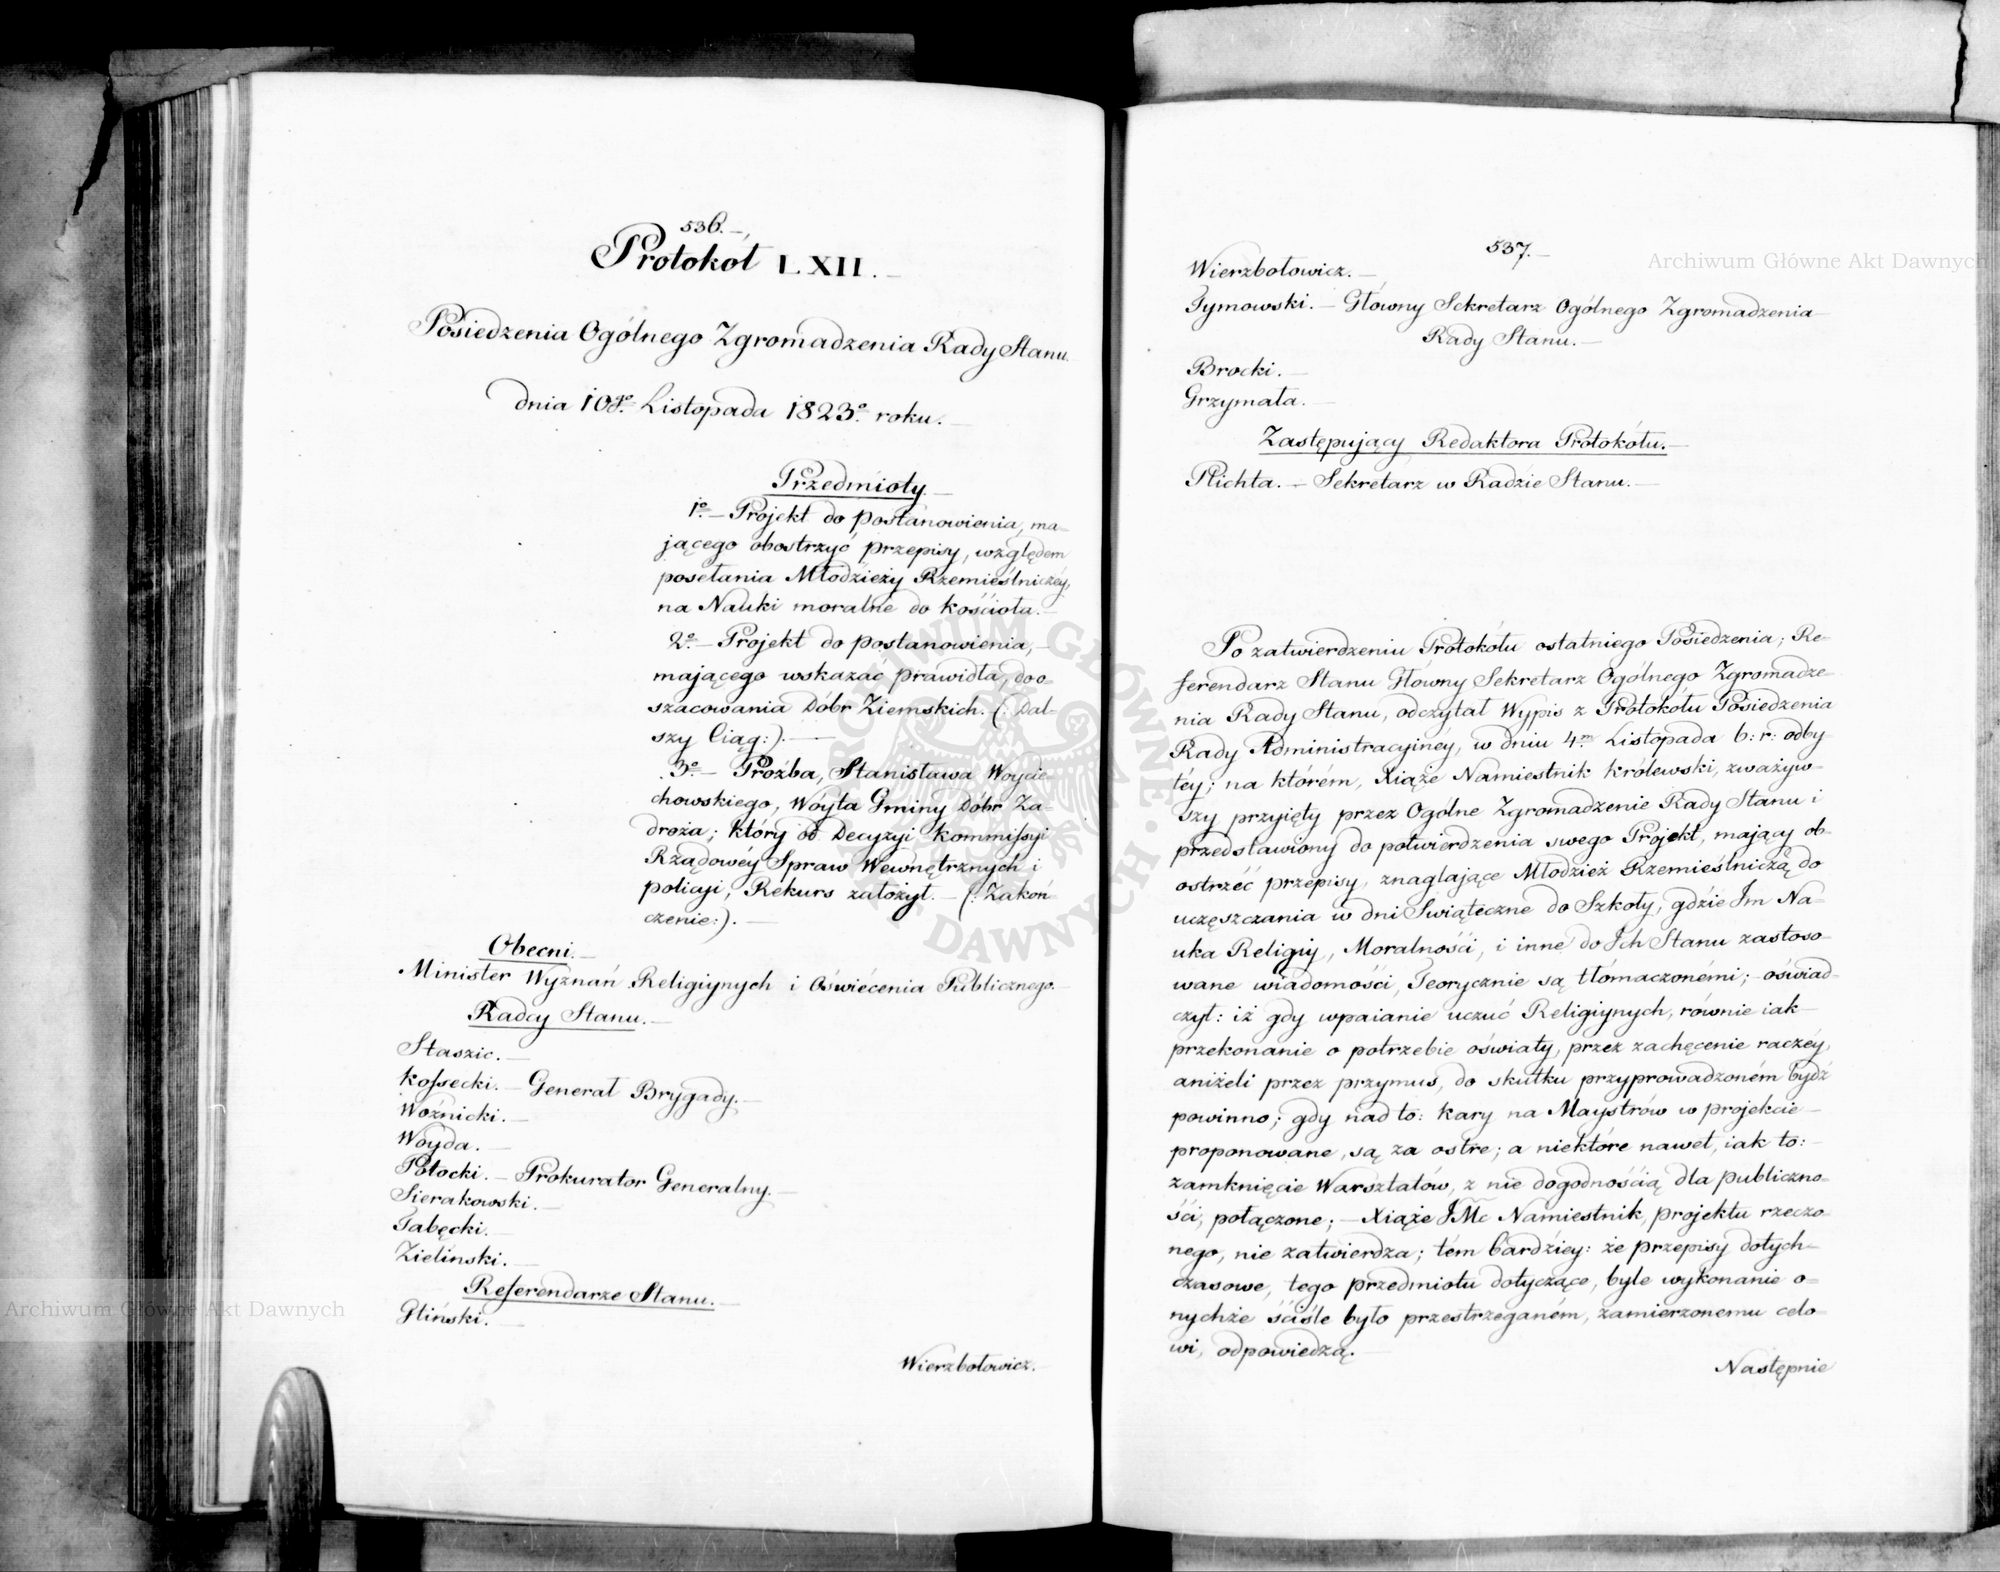 536.
Protokół LXII.
Posiedzenia Ogólnego Zgromadzenia Rady Stanu
dnia 10go Listopada 1823o roku.
Przedmioty.
1o Projekt do postanowienia, ma-
jącego obostrzyć przepisy, względem
posełania Młodzieży Rzemieślniczéy,
na Nauki moralne do kościoła.
2o Projekt do postanowienia,
mającego wskazać prawidła, do o-
szacowania Dóbr Ziemskich. (: Dal-
szy Ciąg:).
3o Proźba, Stanisława Woycie-
chowskiego, Woyta Gminy Dóbr Za-
droża; który od Decyzyi Kommissyi
Rządowéy Spraw Wewnętrznych i
policyi, Rekurs założył. (: Zakoń-
czenie:).
Obecni.
Minister Wyznań Religiynych i Oświécenia Publicznego.
Radcy Stanu.
Staszic.
Kossecki. Generał Brygady.
Woźnicki.
Woyda.
Potocki. Prokurator Generalny.
Sierakowski.
Tabęcki.
Zieliński.
Referendarze Stanu.
Gliński.
Wierzbołowicz.
537.
Wierzbołowicz.
Tymowski. Główny Sekretarz Ogólnego Zgromadzenia
Rady Stanu.
Brocki.
Grzymała.
Zastępujący Redaktora Protokółu.
Plichta. Sekretarz w Radzie Stanu.
Po zatwierdzeniu Protokółu ostatniego Posiedzenia; Re-
ferendarz Stanu Główny Sekretarz Ogólnego Zgromadze-
nia Rady Stanu, odczytał Wypis z Protokółu Posiedzenia
Rady Administracyinéy, w dniu 4m Listopada b: r: odby
téy; na którém, Xiąże Namiestnik Królewski, zważyw-
szy przyięty przez Ogólne Zgromadzenie Rady Stanu i
przedstawiony do potwierdzenia swego Projekt, mający ob-
ostrzéć przepisy, znaglające Młodzież Rzemieślniczą do
uczęszczania w dni Swiąteczne do Szkoły, gdzie Im Na-
uka Religiy, Moralności, i inne do Ich Stanu zastoso-
wane wiadomości, Teorycznie są tłómaczonémi; oświad-
czył: iż gdy wpaianie uczuć Religiynych, równie iak
przekonanie o potrzebie oświaty, przez zachęcenie raczéy,
aniżeli przez przymus, do skutku przyprowadzoném bydź
powinno; gdy nad to: kary na Maystrów w projekcie
proponowane, są za ostre; a niektóre nawet, iak to:
zamknięcie Warsztatów, z nie dogodnością dla publiczno-
ści, połączone; Xiąże JMc Namiestnik, projektu rzeczo-
nego, nie zatwierdza; tém bardziey: że przepisy dotych-
czasowe, tego przedmiotu dotyczące, byle wykonanie o-
nychże ściśle było przestrzeganém, zamierzonemu celo-
wi, odpowiedzą.
Następnie
Archiwum Główne Akt Dawnych
Archiwum Główne Akt Dawnych
ARCHIWUM GŁÓWNE AKT DAWNYCH